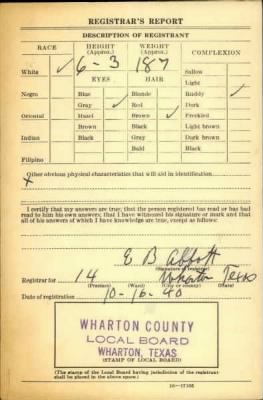 REGISTRAR'S REPORT
DESCRIPTION OF REGISTRANT
RACE HEIGHT (Approx.) WEIGHT (Approx.) COMPLEXION
White ✓ 6-3 187 Sallow
EYES HAIR Light
Negro Blue Blonde Ruddy ✓
Gray ✓ Red Dark
Oriental Hazel Brown ✓ Freckled
Brown Black Light brown
Indian Black Gray Dark brown
Bald Black
Filipino
Other obvious physical characteristics that will aid in identification
x
I certify that my answers are true; that the person registered has read or has had
read to him his own answers; that I have witnessed his signature or mark and that
all of his answers of which I have knowledge are true, except as follows:
E B Abbott
(Signature of registrar)
Registrar for 14 Wharton Texas
(Precinct) (Ward) (City or county) (State)
Date of registration 10-16-40
WHARTON COUNTY
LOCAL BOARD
WHARTON, TEXAS
(STAMP OF LOCAL BOARD)
(The stamp of the Local Board having jurisdiction of the registrant
shall be placed in the above space.)